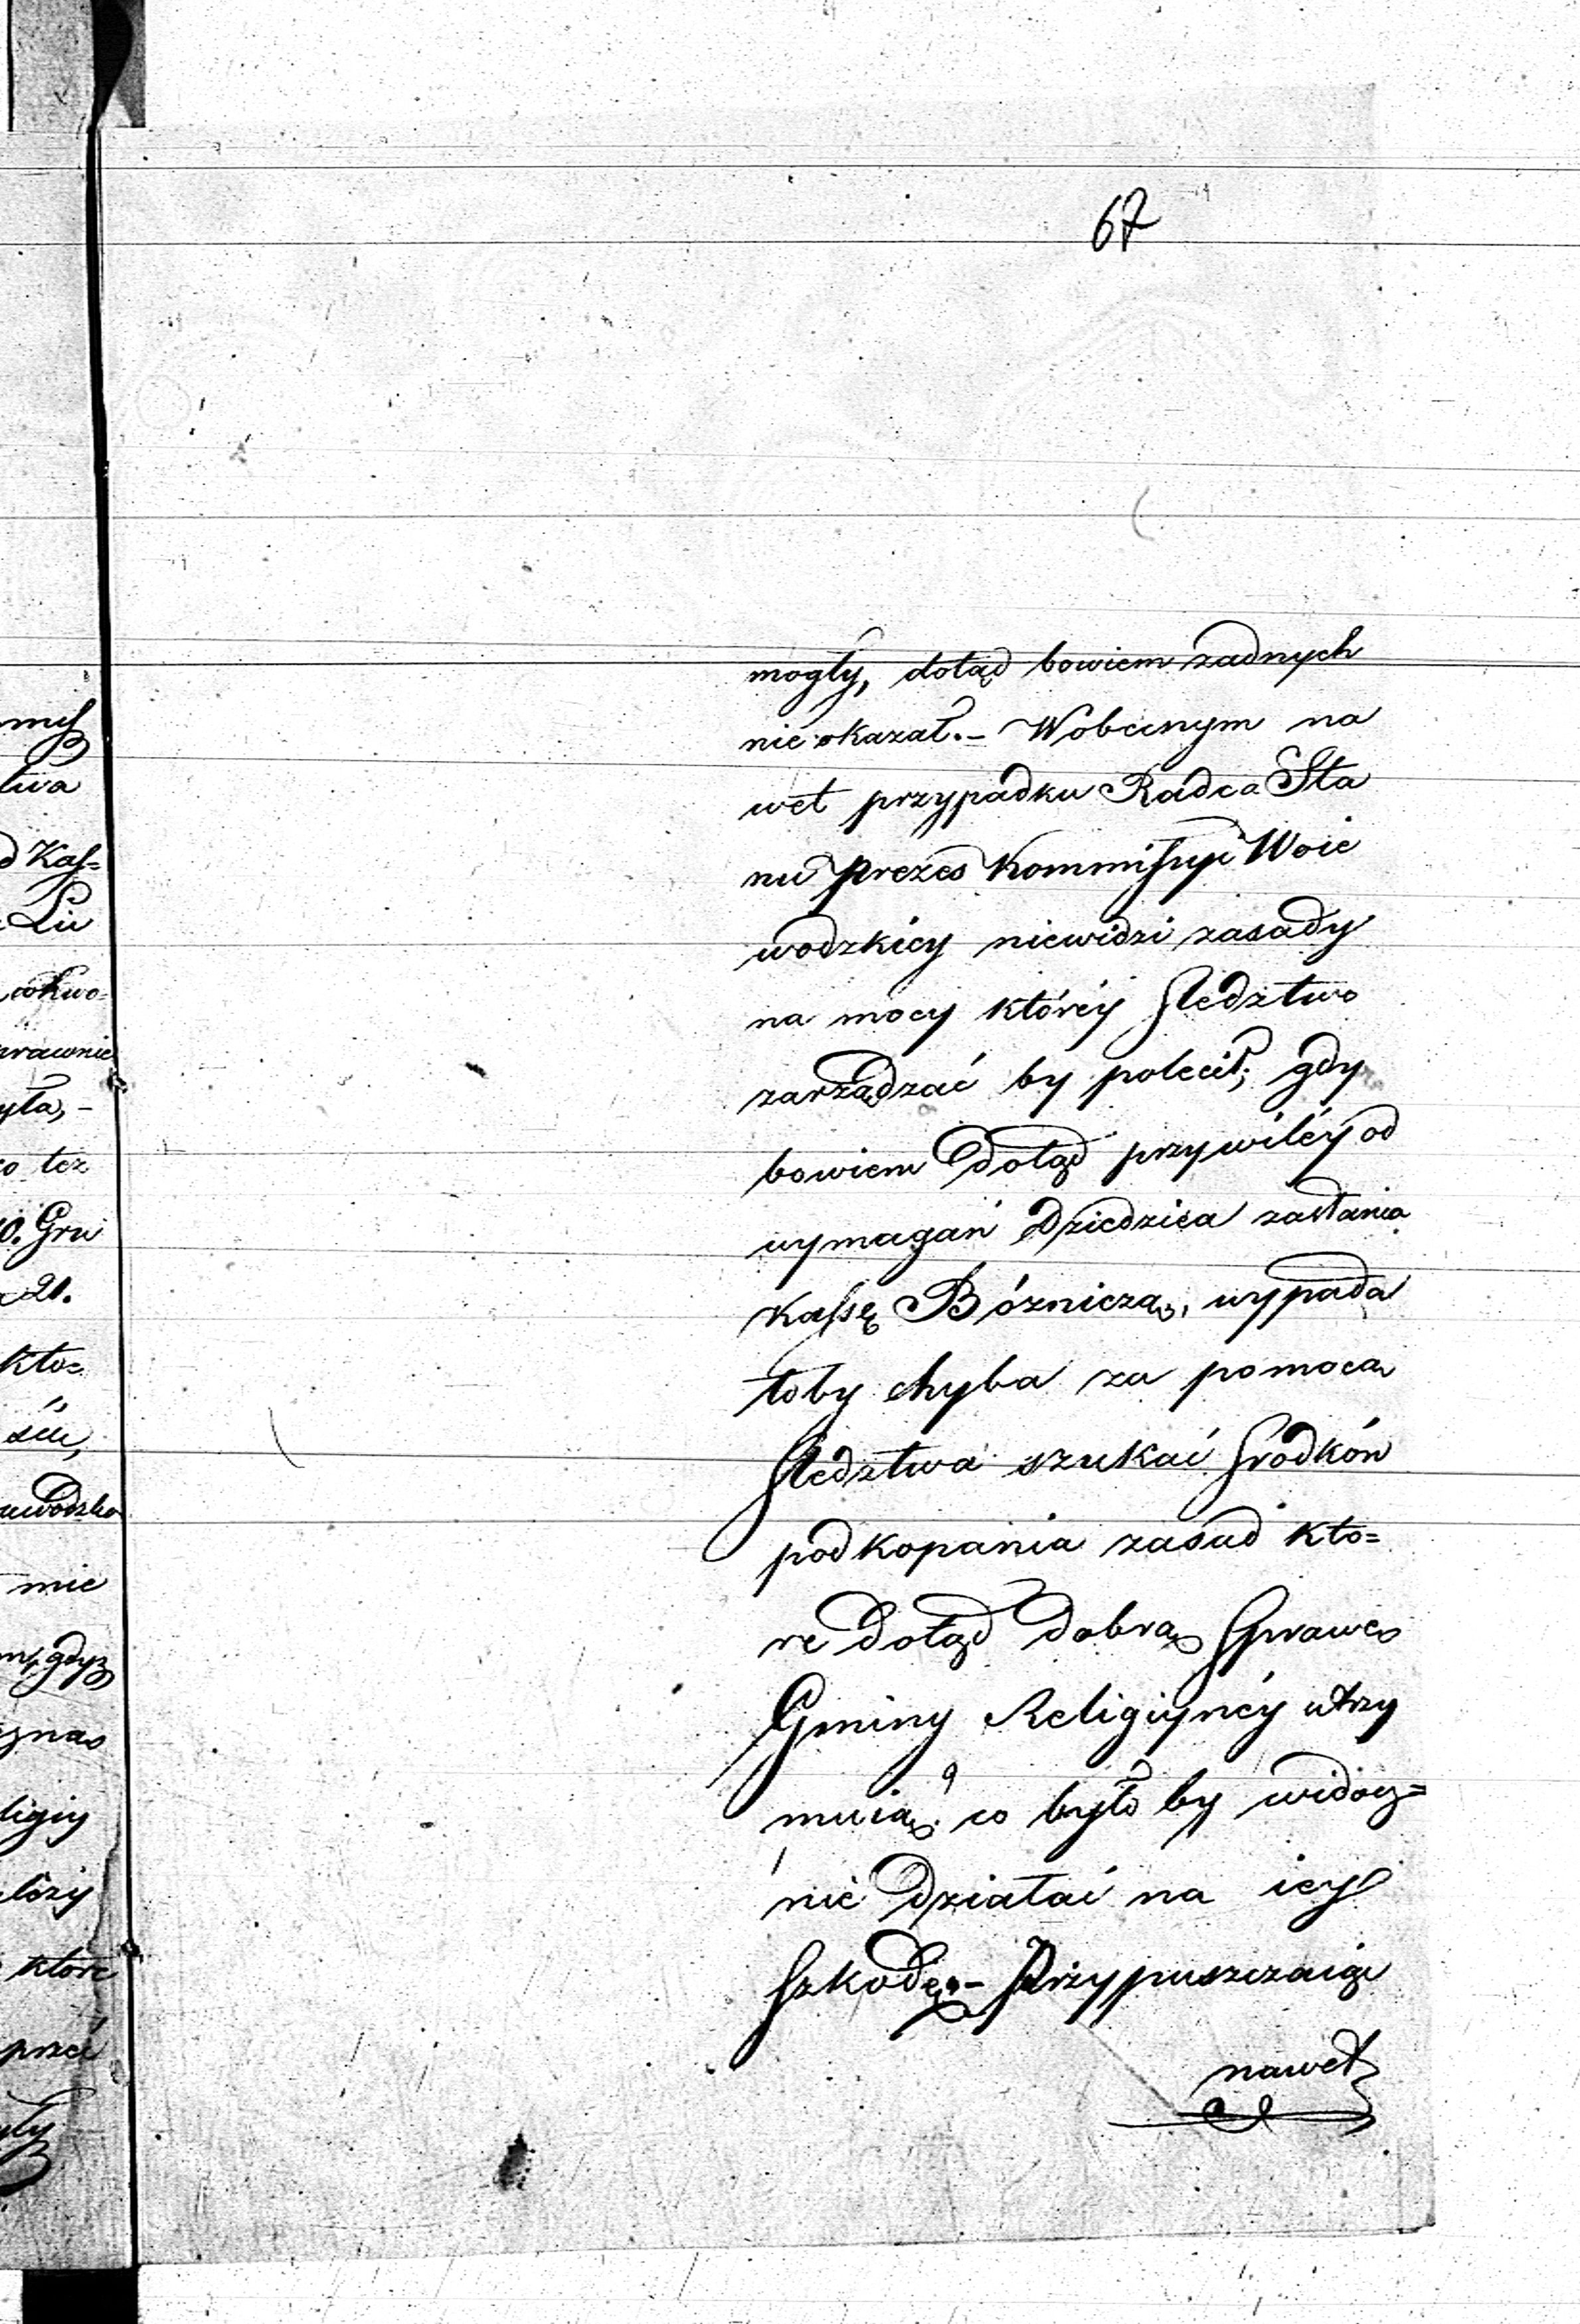 67
mogły, dotąd bowiem żadnych
nie okazał. – W obecnym na
wet przypadku Radca Sta
nu Prezes Kommissyi Woie
wodzkiey niewidzi zasady
na mocy któréy śledztwo
zarządzać by polecił; gdy
bowiem dotąd przywiléy od
wymagań Dziedzica zasłania
kassę Bózniczą, wypada
łoby chyba za pomocą
śledztwa szukać środków
podkopania zasad któ=
re dotąd dobrą sprawę
Gminy Religiynéy utrzy
muią, co było by widocz=
nie działać na iey
szkodę. – Przypuszczaiąc
nawet
twa
d Kas=
Liu
prawnie
yła, –
o też
0. Gru
21.
któ=
nie
gdyż
zna
ligiy
które